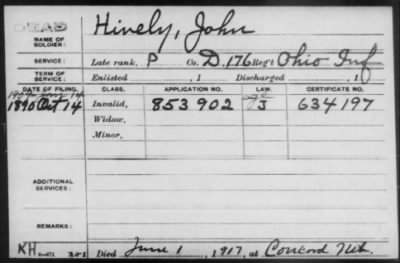 DEAD
NAME OF SOLDIER: Hively, John
SERVICE: Late rank, P Co. D, 176 Reg't Ohio Inf
TERM OF SERVICE: Enlisted , 1 Discharged , 1
DATE OF FILING. CLASS. APPLICATION NO. CERTIFICATE NO.
14
1890 Oct 14 Invalid, 853902 634197
Widow,
Minor,
ADDITIONAL SERVICES:
REMARKS:
KH
Died June 1, 1917, at Concord Neb.